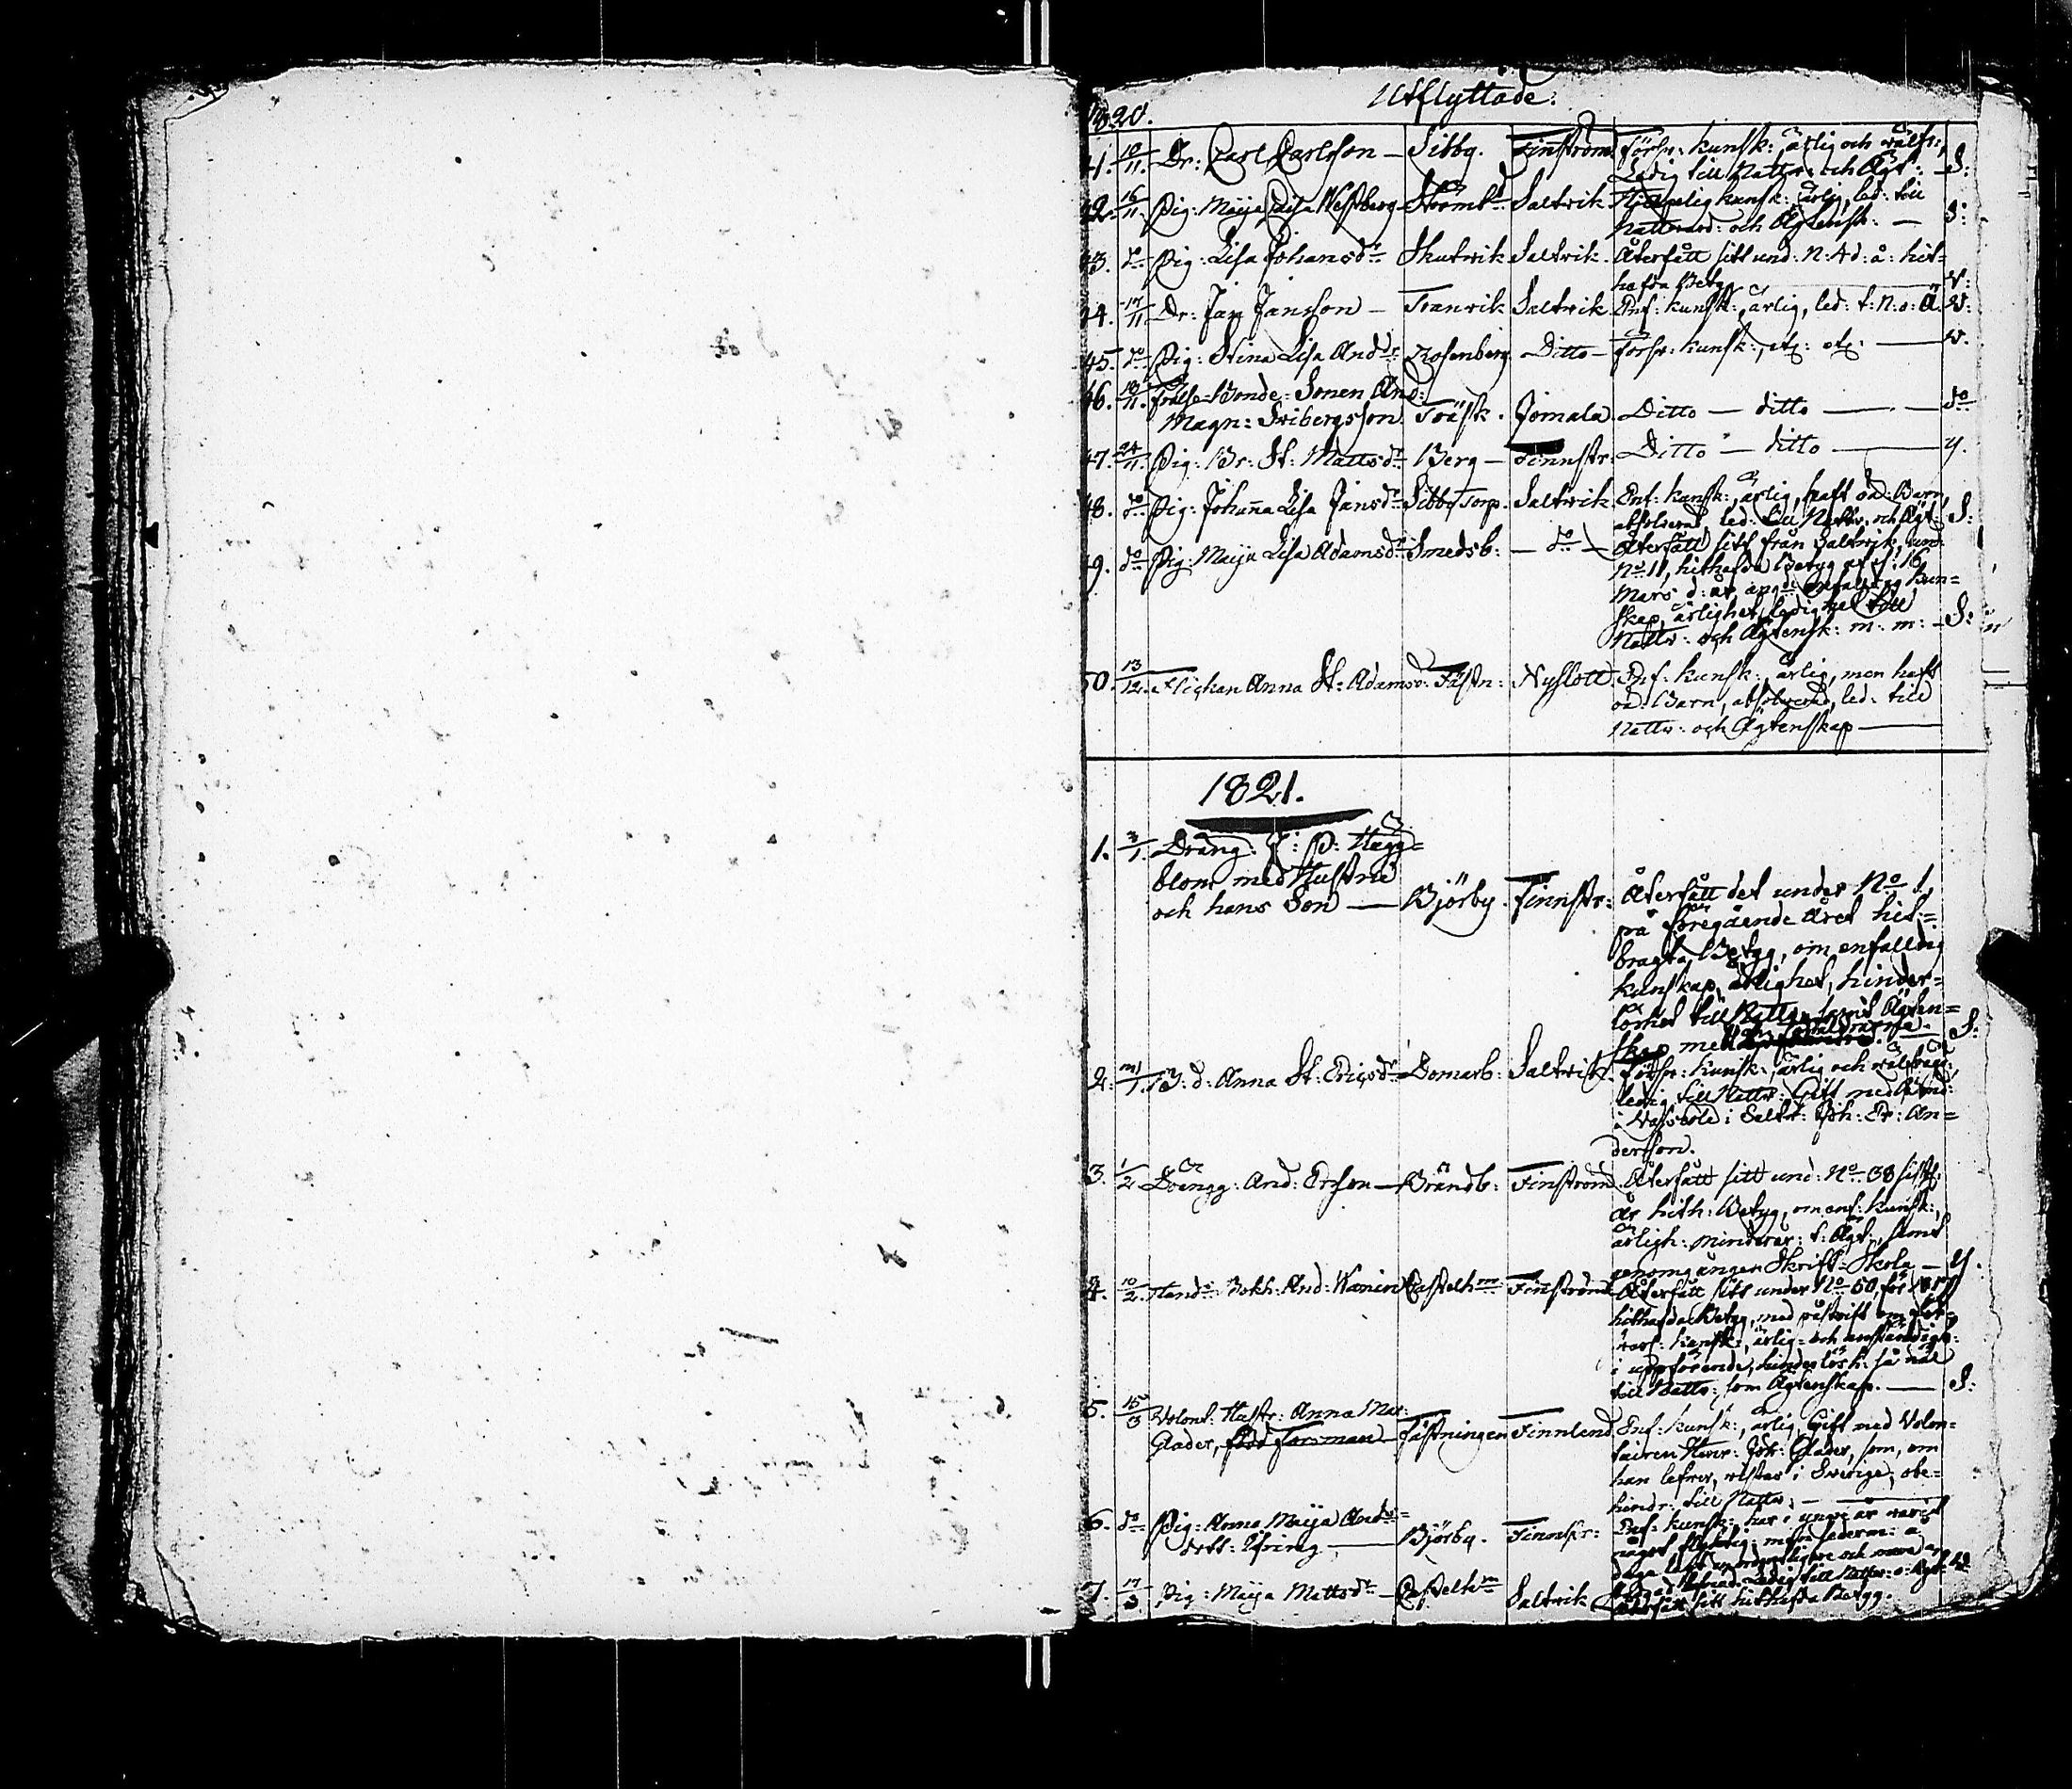 Utflyttade.
1820.
41. 10/11. Dr: Carl Carlsson — Sibby. Finström Försv: kunsk: ärlig och välfr:,
Ledig till Nattv: och Ägt: — S:
42. 16/11. Pig: Maija Caisa Westberg Saltvik kunsk: ärlig, led: till
Nattvard: och Ägtensk: — S:
43. do Pig: Lisa Johansdr Skutvik Saltvik. Återfått sitt und: N: 4 d: å: hit=
hafda Betyg V:
44. 17/11 Dr: Jan Jansson — Tranvik Saltvik Enf: kunsk:, ärlig, led: t: N: o: Ä. V:
45. do Pig: Stina Lisa Anddr Rosenberg Ditto — Försv: kunsk:, etc: etc: — V.
46. 18/11. Frälse-Bonde-Sonen And:
Magn: Sribergsson Träsk. Jomala. Ditto — ditto — do
47. 24/11. Pig: Br: St: Mattsdr Berg — Finnstr: Ditto — ditto — Y.
48. do Pig: Johaña Lisa Jansdr Sibby Torp. Saltvik Enf: kunsk:, ärlig, haft oä: Barn,
absolverad, led: till Nattv: och Ägt: S:
49. do Pig: Maija Lisa Adamsdr Smedsb: — do — Återfått sitt från Saltvik, und:
No 11, hithafda Betyg af d: 16
Mars d: år, ang: enfalldig kun=
skap, ärlighet, ledighet till
Nattv: och Ägtensk: m: m: — S:
50. 13/12. Flickan Anna St: Adamsd: Fästn: Nyslott Enf: kunsk:, ärlig, men haft
oä: Barn, absolverad, led: till
Nattv: och Ägtenskap —
1821.
1. 3/1. Dräng: J: P: Hägg=
blom med Hustru
och hans Son — Björby. Finnstr: Återfått det under No 1,
på föregående året hit=
bragta Betyg, om enfalldig
kunskap, ärlighet, hinder=
löshet till Nattv: samt Ägten=
skap med S:
2. 31/1. B: d: Anna St: Ericsdr Domarb: Saltvik. Försv: kunsk: ärlig och välfräjd:,
ledig till Nattv: Gift med
i Hafverö i Saltv: Joh: Er: An=
dersson.
3. 1/2 Drängg: And: Ersson — Brändb: Finström. Återfått sitt und: No 38 sistl:
år hith: Betyg, om enf: kunsk:,
ärligh: minderår: t: Ägt:, samt
genomgången Skrift-Skola — Y.
4. 10/2. Hand: Bokh: And: Wanin Castelhm Finström Återfått sitt under No 50, för
hithafda Betyg, med påskrift om
kunsk:, ärlig= och anständigh:
i uppförande, hinderlösh: så väl
till Nattv: som Ägtenskap. — S:
5. 15/3 Volont: Hustr: Anna Mar:
Glader, född Forsman Fästningen Finnland Enf: kunsk:, ärlig, Gift med Volon=
tairen Henr: Joh: Glader, som, om
han lefver, vistas i Sverige, obe=
hindr: till Nattv: —
6. do Pig: Anna Maija Ands=
dott: Öfring — Björby. Finnstr: Enf: kunsk: har i yngre år varit
något flyktig: men sederm: å
daga och mera
Ledig till Nattv: o: Ägt:
7. 17/3. Pig: Maija Mattsdr — Castelhm Saltvik Återfått sitt hithafda Betyg.